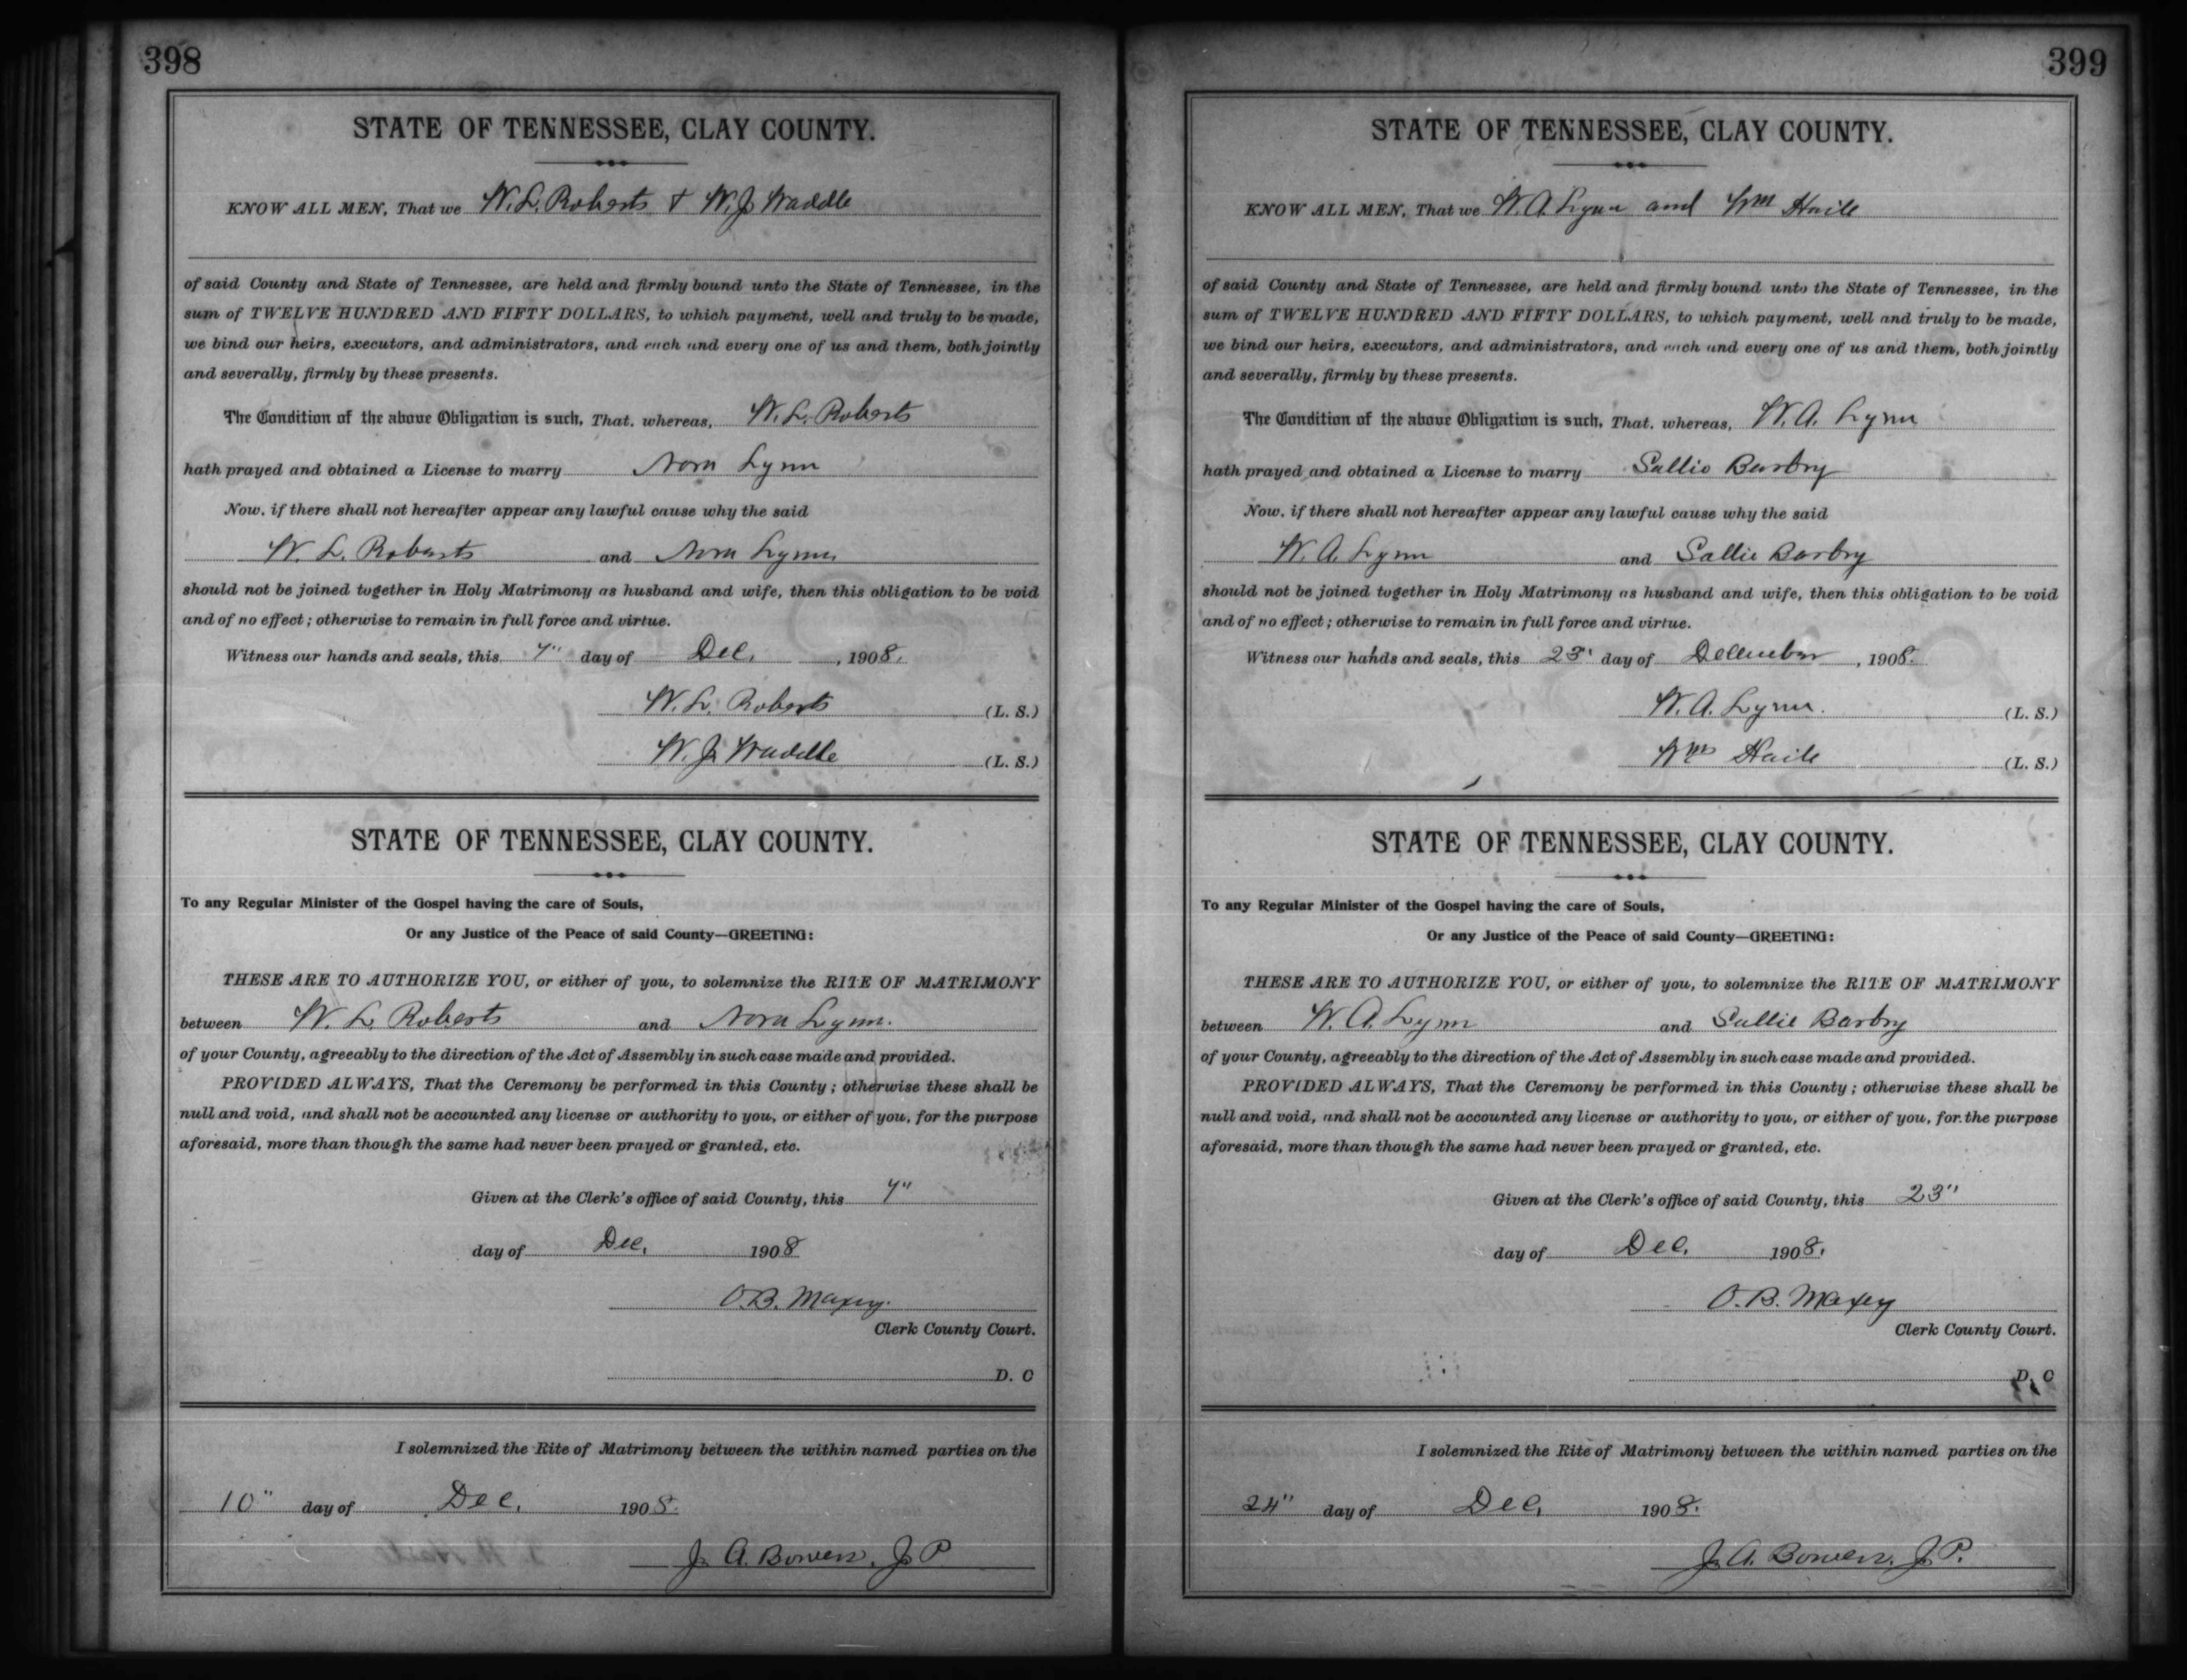 398
STATE OF TENNESSEE, CLAY COUNTY.
KNOW ALL MEN, That we W. L. Roberts & W. J. Waddle
of said County and State of Tennessee, are held and firmly bound unto the State of Tennessee, in the
sum of TWELVE HUNDRED AND FIFTY DOLLARS, to which payment, well and truly to be made,
we bind our heirs, executors, and administrators, and each and every one of us and them, both jointly
and severally, firmly by these presents.
The Condition of the above Obligation is such, That, whereas, W. L. Roberts
hath prayed and obtained a License to marry Nora Lynn
Now, if there shall not hereafter appear any lawful cause why the said
W. L. Roberts and Nora Lynn
should not be joined together in Holy Matrimony as husband and wife, then this obligation to be void
and of no effect; otherwise to remain in full force and virtue.
Witness our hands and seals, this 7" day of Dec. , 1908.
W. L. Roberts (L. S.)
W. J. Waddle (L. S.)
STATE OF TENNESSEE, CLAY COUNTY.
To any Regular Minister of the Gospel having the care of Souls,
Or any Justice of the Peace of said County—GREETING:
THESE ARE TO AUTHORIZE YOU, or either of you, to solemnize the RITE OF MATRIMONY
between W. L. Roberts and Nora Lynn.
of your County, agreeably to the direction of the Act of Assembly in such case made and provided.
PROVIDED ALWAYS, That the Ceremony be performed in this County; otherwise these shall be
null and void, and shall not be accounted any license or authority to you, or either of you, for the purpose
aforesaid, more than though the same had never been prayed or granted, etc.
Given at the Clerk's office of said County, this 7"
day of Dec. 1908
O. B. Maxey.
Clerk County Court.
D. C
I solemnized the Rite of Matrimony between the within named parties on the
10" day of Dec. 1908.
J. A. Bowen, J P
399
STATE OF TENNESSEE, CLAY COUNTY.
KNOW ALL MEN, That we W. A. Lynn and Wm Haile
of said County and State of Tennessee, are held and firmly bound unto the State of Tennessee, in the
sum of TWELVE HUNDRED AND FIFTY DOLLARS, to which payment, well and truly to be made,
we bind our heirs, executors, and administrators, and each and every one of us and them, both jointly
and severally, firmly by these presents.
The Condition of the above Obligation is such, That, whereas, W. A. Lynn
hath prayed and obtained a License to marry Sallie Barbry
Now, if there shall not hereafter appear any lawful cause why the said
W. A. Lynn and Sallie Barbry
should not be joined together in Holy Matrimony as husband and wife, then this obligation to be void
and of no effect; otherwise to remain in full force and virtue.
Witness our hands and seals, this 23" day of December , 1908.
W. A. Lynn. (L. S.)
Wm Haile (L. S.)
STATE OF TENNESSEE, CLAY COUNTY.
To any Regular Minister of the Gospel having the care of Souls,
Or any Justice of the Peace of said County—GREETING:
THESE ARE TO AUTHORIZE YOU, or either of you, to solemnize the RITE OF MATRIMONY
between W. A. Lynn and Sallie Barbry
of your County, agreeably to the direction of the Act of Assembly in such case made and provided.
PROVIDED ALWAYS, That the Ceremony be performed in this County; otherwise these shall be
null and void, and shall not be accounted any license or authority to you, or either of you, for the purpose
aforesaid, more than though the same had never been prayed or granted, etc.
Given at the Clerk's office of said County, this 23"
day of Dec. 1908.
O. B. Maxey
Clerk County Court.
D. C
I solemnized the Rite of Matrimony between the within named parties on the
24" day of Dec. 1908.
J. A. Bowen, J. P.